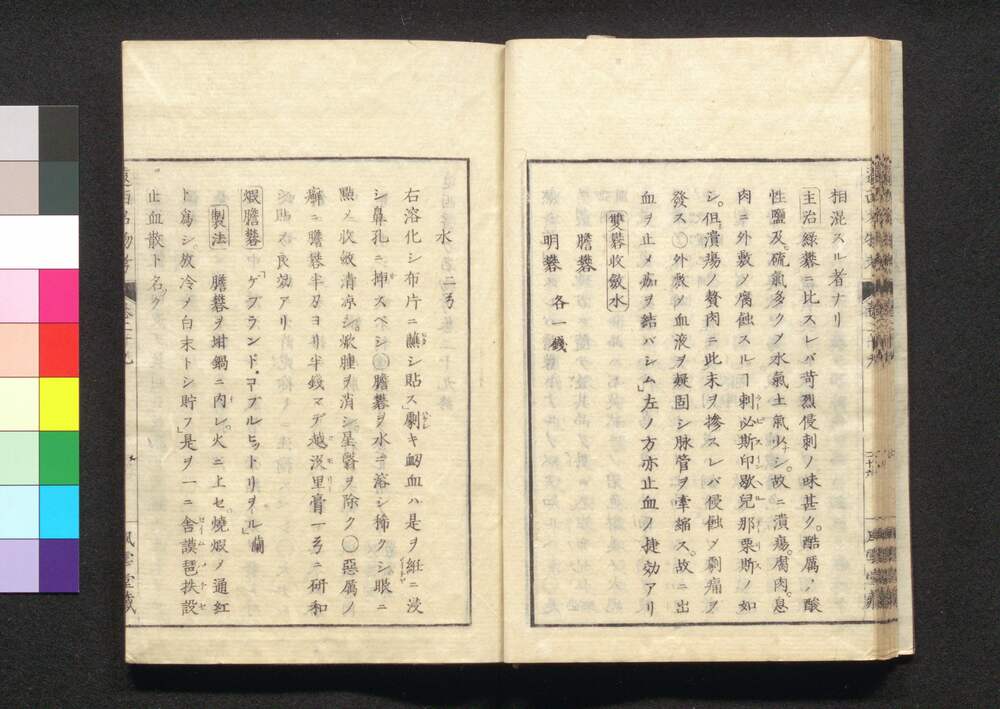 相混スル者ナリ
主治緑礬ニ比スレバ苛烈侵刺ノ味甚ク酷厲ノ酸
性鹽及硫氣多クノ水氣土氣少シ故ニ潰瘍腐肉息
肉ニ外敷ノ腐蝕スルヿ刺必斯印歇兒那栗斯ノ如
シ但潰瘍ノ贅肉ニ此末ヲ摻スレバ侵蝕ノ劇痛ヲ
發ス〇外敷ノ血液ヲ凝固シ脉管ヲ牽縮ス故ニ出
血ヲ止メ痂ヲ結バシム左ノ方亦止血ヲ捷効アリ
雙礬收斂水
膽礬
明礬 各一錢
水 二弓
右溶化シ布片ニ蘸シ貼ス劇キ衂血ハ是ヲ紙ニ浸
シ鼻孔ニ挿スベシ〇膽礬ヲ水ニ溶シ稀クシ眼ニ
㸃メ收斂清凉シ焮腫ヲ消シ星翳ヲ除ク〇惡厲ノ
癬ニ膽礬半刄ヨリ半錢マデ越泼里膏一弓ニ研和
シ貼メ良効アリ
煆膽礬 ゲブランド、コプルヒットリヲル 蘭
製法 膽礬ヲ坩鍋ニ内レ火ニ上セ燒煆ノ通紅
ト爲シ放冷メ白末トシ貯フ是ヲ一ニ舎謨琶扶設
止血散ト名ク
二十六
風雲堂藏